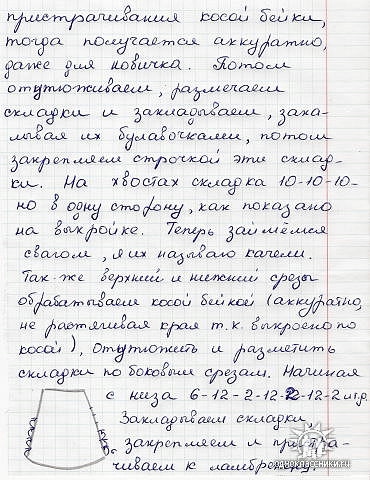 пристрачивания косой бейки,
тогда получается аккуратно,
даже для новичка. Потом
отутюживаем, размечаем
складки и закладываем, зака-
лывая их булавочками, потом
закрепляем строчкой эти склад-
ки. На хвостах складка 10-10-10-
но в одну сторону, как показано
на выкройке. Теперь займёмся
свагом, я их называю качели.
Так же верхний и нижний срезы
обрабатываем косой бейкой (аккуратно,
не растягивая края т.к. выкроено по
косой), отутюжить и разметить
складки по боковым срезам. Начиная
с низа 6-12-2-12-2-12-2 и т.д.
Закладываем складки,
закрепляем и пристра-
чиваем к ламбрекену.
одноклассники.ru